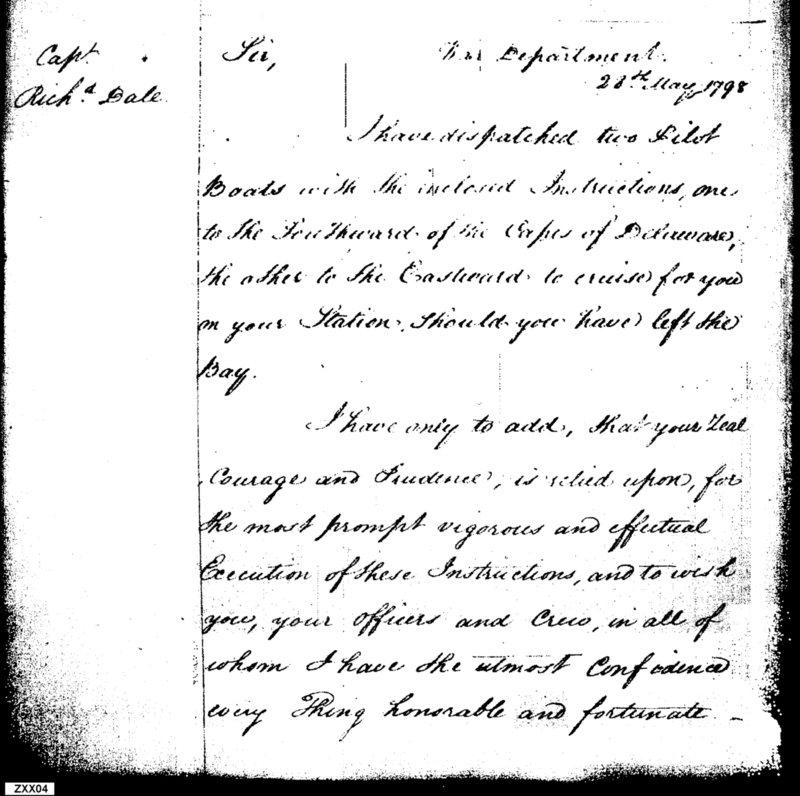 Capt
Richd Dale
Sir,
War Department.
28th May 1798
I have dispatched two Pilot
Boats with the inclosed Instructions, one
to the Southward of the Capes of Delaware,
the other to the Eastward to cruise for you
on your Station, should you have left the
Bay.
I have only to add, that your Zeal
Courage and Prudence, is relied upon, for
the most prompt vigorous and effectual
Execution of these Instructions, and to wish
you, your officers and Crew, in all of
whom I have the utmost Confidence
every Thing honorable and fortunate –
ZXX04